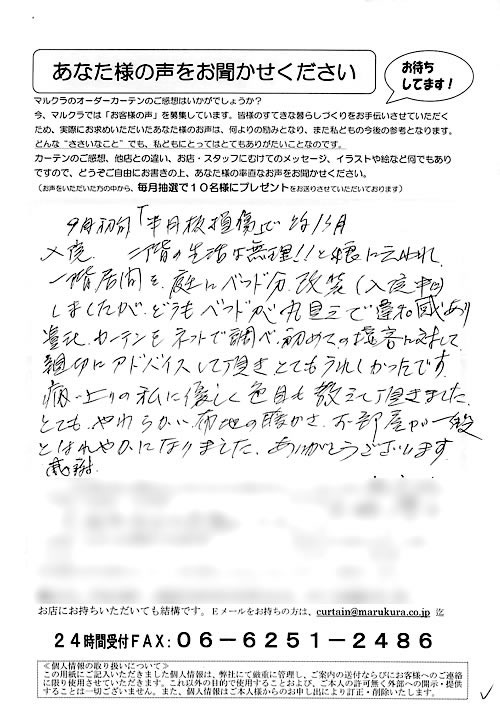 あなた様の声をお聞かせください
お待ち
してます！
マルクラのオーダーカーテンのご感想はいかがでしょうか？
今、マルクラでは「お客様の声」を募集しています。皆様のすてきな暮らしづくりをお手伝いさせていただく
ため、実際にお求めいただいたあなた様のお声は、何よりの励みとなり、また私どもの今後の参考となります。
どんな“ささいなこと”でも、私どもにとってはとてもありがたいことなのです。
カーテンのご感想、他店との違い、お店・スタッフにむけてのメッセージ、イラストや絵など何でもあり
ですので、どうぞご自由にお書きの上、あなた様の率直なお声をお聞かせください。
（お声をいただいた方の中から、毎月抽選で１０名様にプレゼントをお送りさせていただいております）
9月初旬「半月板損傷」で約1ヶ月
入院 二階の生活は無理!!と娘に云われ
一階居間を、庭にベッド分、改装（入院中）
しましたが、どうもベッドが丸見えで違和感あり
カーテンをネットで調べ、初めての接客に対して
親切にアドバイスして頂きとてもうれしかったです
病い上りの私に優しく色目も教えて頂きました
とても、やわらかい布地の暖かさ、お部屋が一段
とはれやかになりました。ありがとうございます
感謝
お店にお持ちいただいても結構です。Ｅメールをお持ちの方は、curtain@marukura.co.jp 迄
２４時間受付FAX：０６－６２５１－２４８６
≪個人情報の取り扱いについて≫
この用紙にご記入いただきました個人情報は、弊社にて厳重に管理し、ご案内の送付ならびにお客様へのご連絡
に限り使用させていただきます。これ以外の目的で使用することおよび、ご本人の許可無く外部への開示・提供
することは一切ございません。また、個人情報はご本人様からのお申し出により訂正・削除いたします。